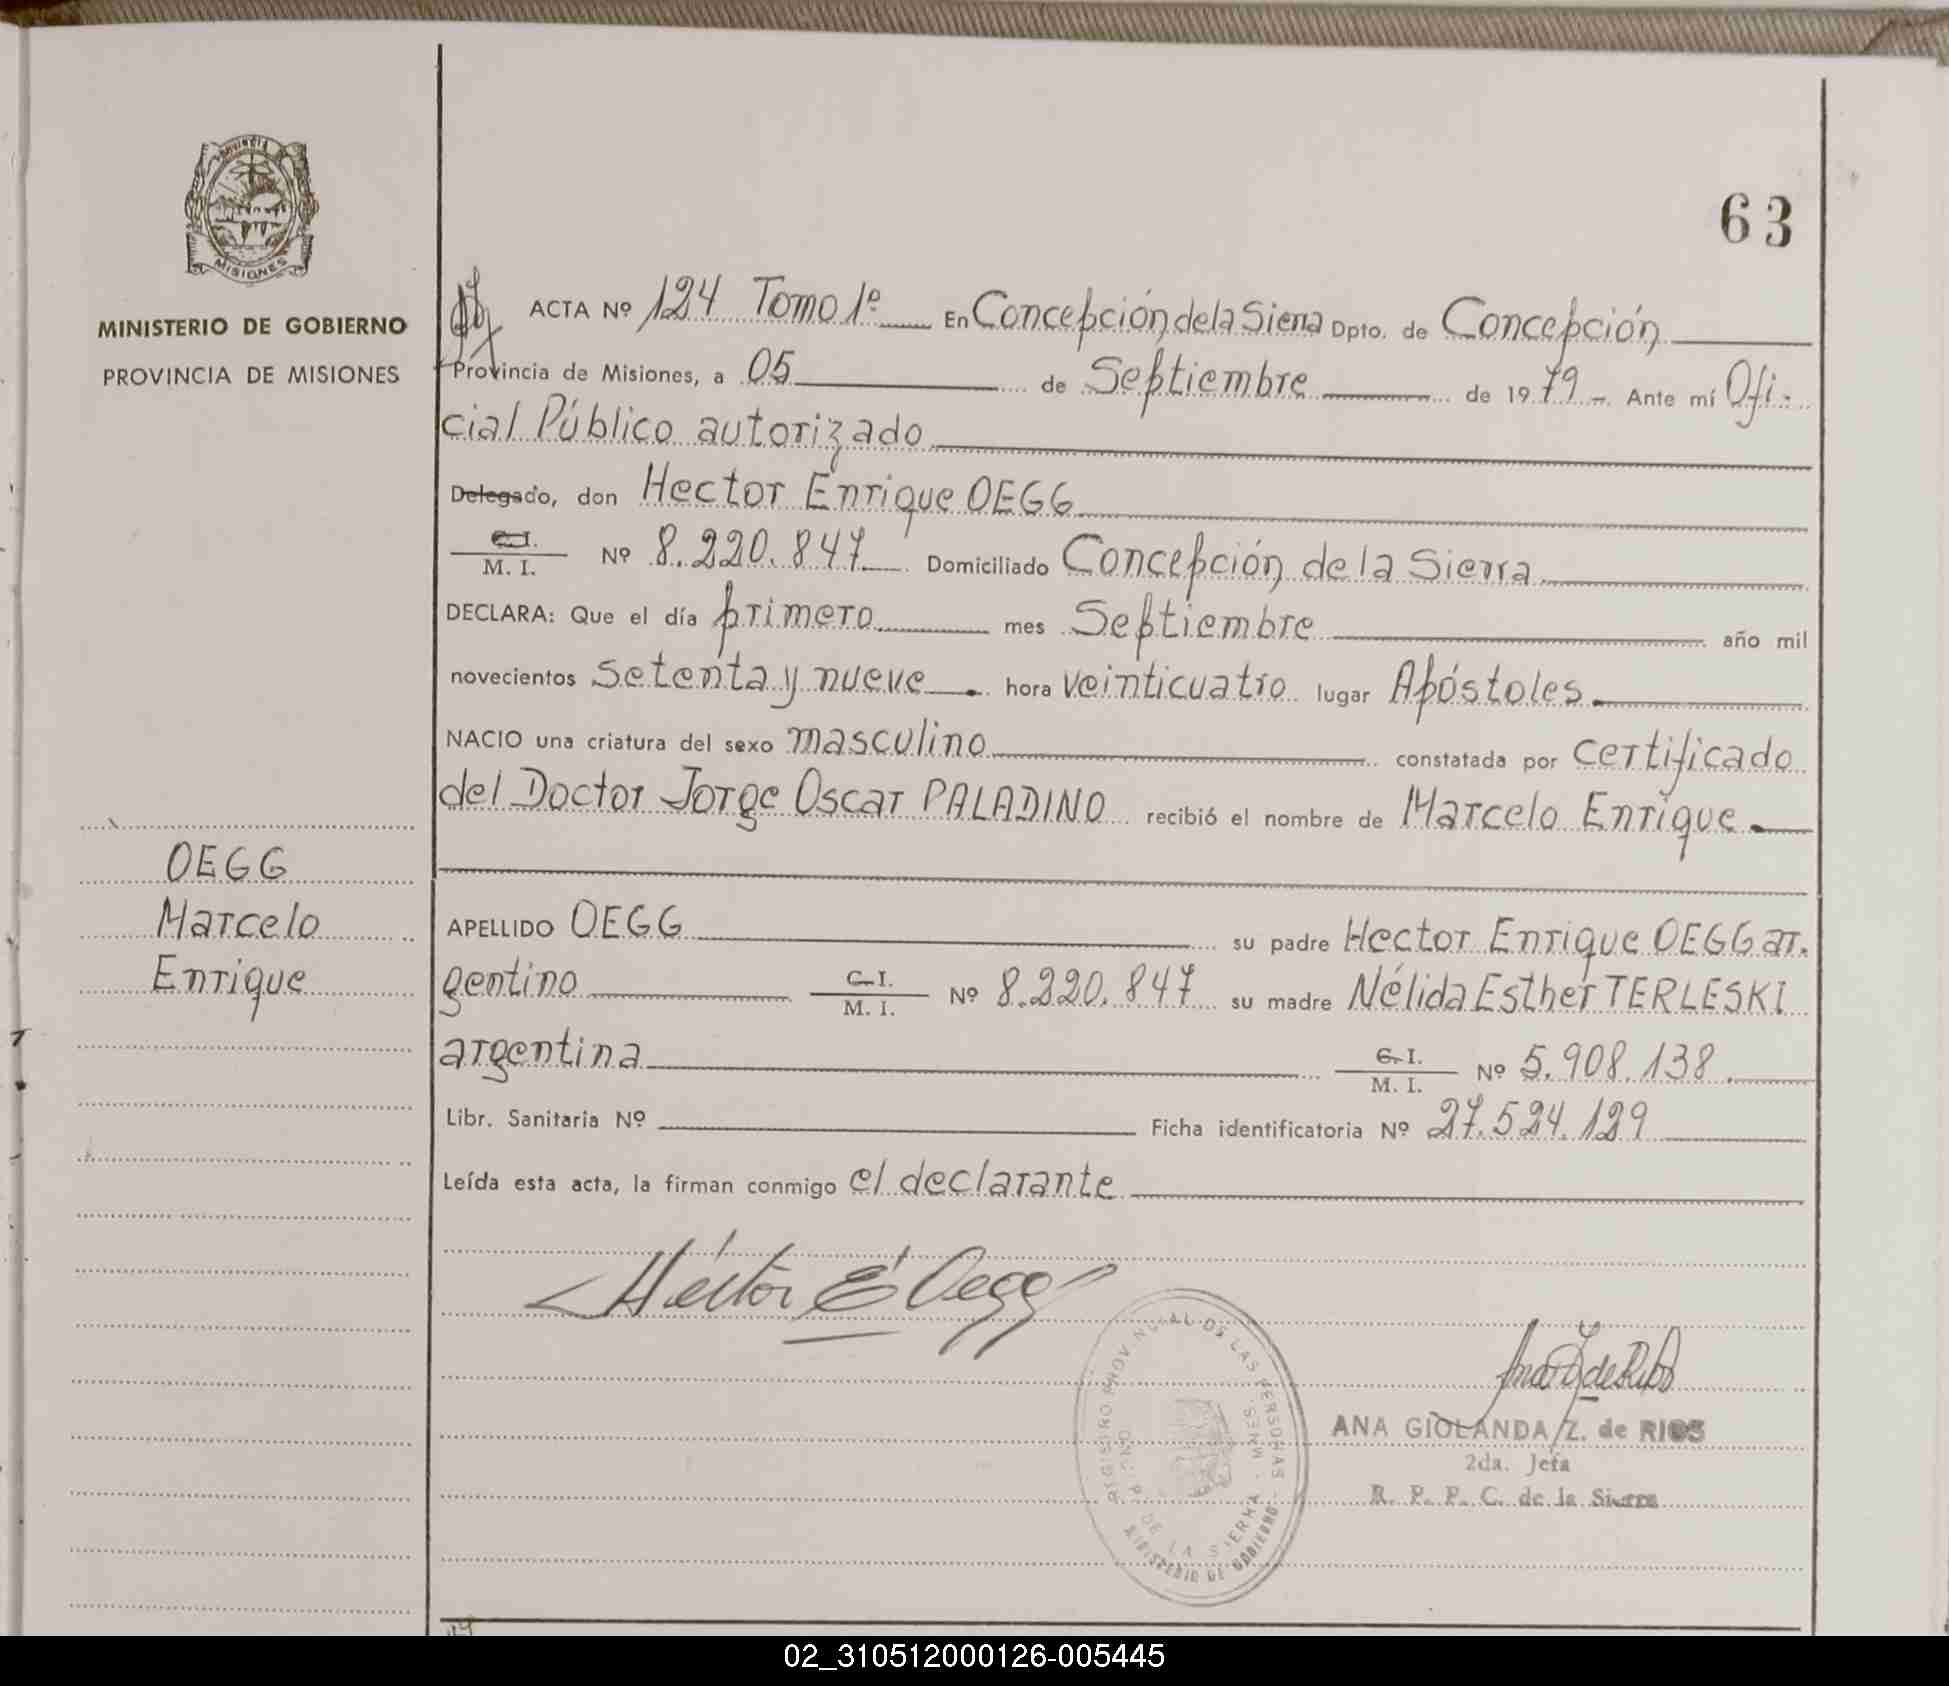 PROVINCIA DE
MISIONES
MINISTERIO DE GOBIERNO
PROVINCIA DE MISIONES
OEGG
Marcelo
Enrique
63
ACTA Nº 124 Tomo 1º En Concepción de la Sierra Dpto. de Concepción
Provincia de Misiones, a 05 de Septiembre de 1979 - Ante mí Ofi-
cial Público autorizado
Delegado, don Hector Enrique OEGG
C.I.
M. I. Nº 8.220.847 Domiciliado Concepción de la Sierra
DECLARA: Que el día primero mes Septiembre año mil
novecientos setenta y nueve hora veinticuatro lugar Apóstoles
NACIO una criatura del sexo masculino constatada por certificado
del Doctor Jorge Oscar PALADINO recibió el nombre de Marcelo Enrique
APELLIDO OEGG su padre Hector Enrique OEGG ar-
gentino C.I. M. I. Nº 8.220.847 su madre Nélida Esther TERLESKI
argentina C.I. M. I. Nº 5.908.138
Libr. Sanitaria Nº Ficha identificatoria Nº 27.524.129
Leída esta acta, la firman conmigo el declarante
Héctor E Oegg
REGISTRO PROVINCIAL DE LAS PERSONAS
CONCEP. DE LA SIERRA - MNES.
MINISTERIO DE GOBIERNO
Ana Z de Rios
ANA GIOLANDA Z. de RIOS
2da. Jefa
R. P. P. C. de la Sierra
02_310512000126-005445